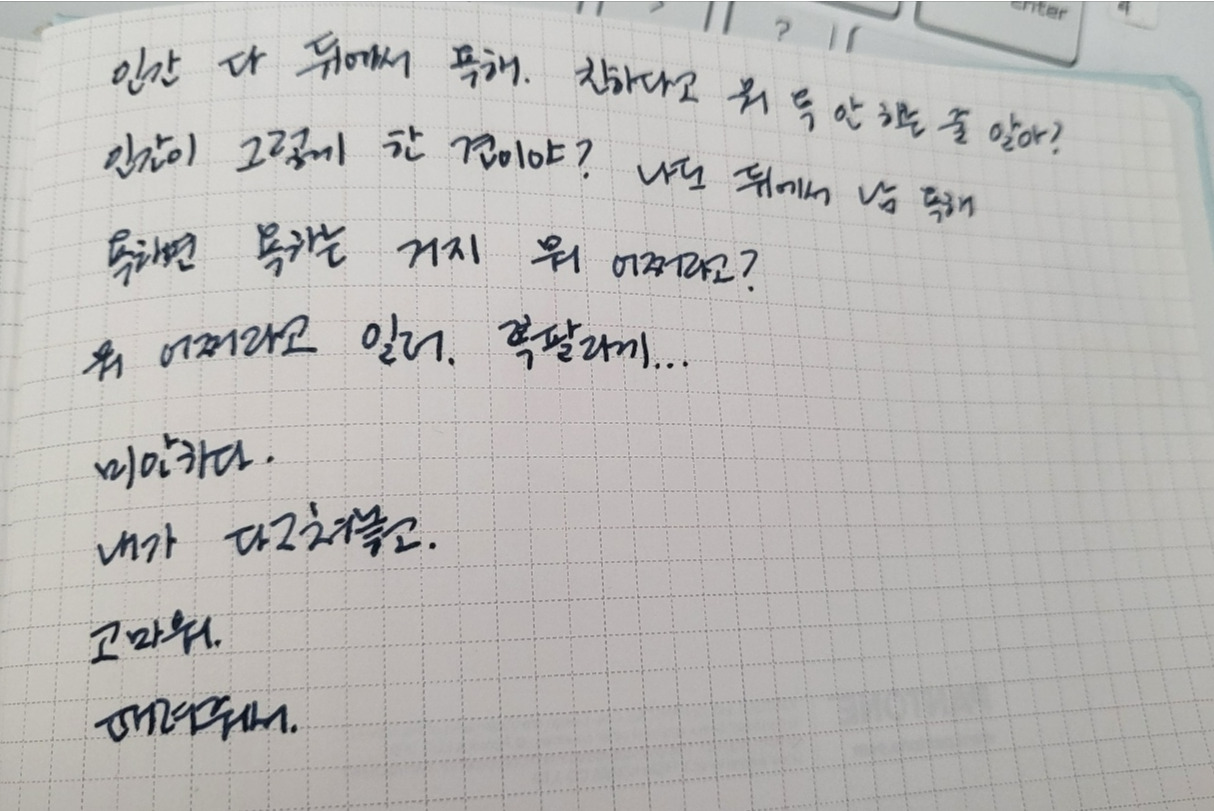 enter
인간 다 뒤에서 욕해. 친하다고 뭐 욕 안 하는 줄 알아?
인간이 그렇게 한 겹이야? 나도 뒤에서 남 욕해
욕하면 욕하는 거지 뭐 어쩌라고?
뭐 어쩌라고 일러. 쪽팔리게...
미안하다.
내가 다그쳐놓고.
고마워.
때려줘서.
PANTONE